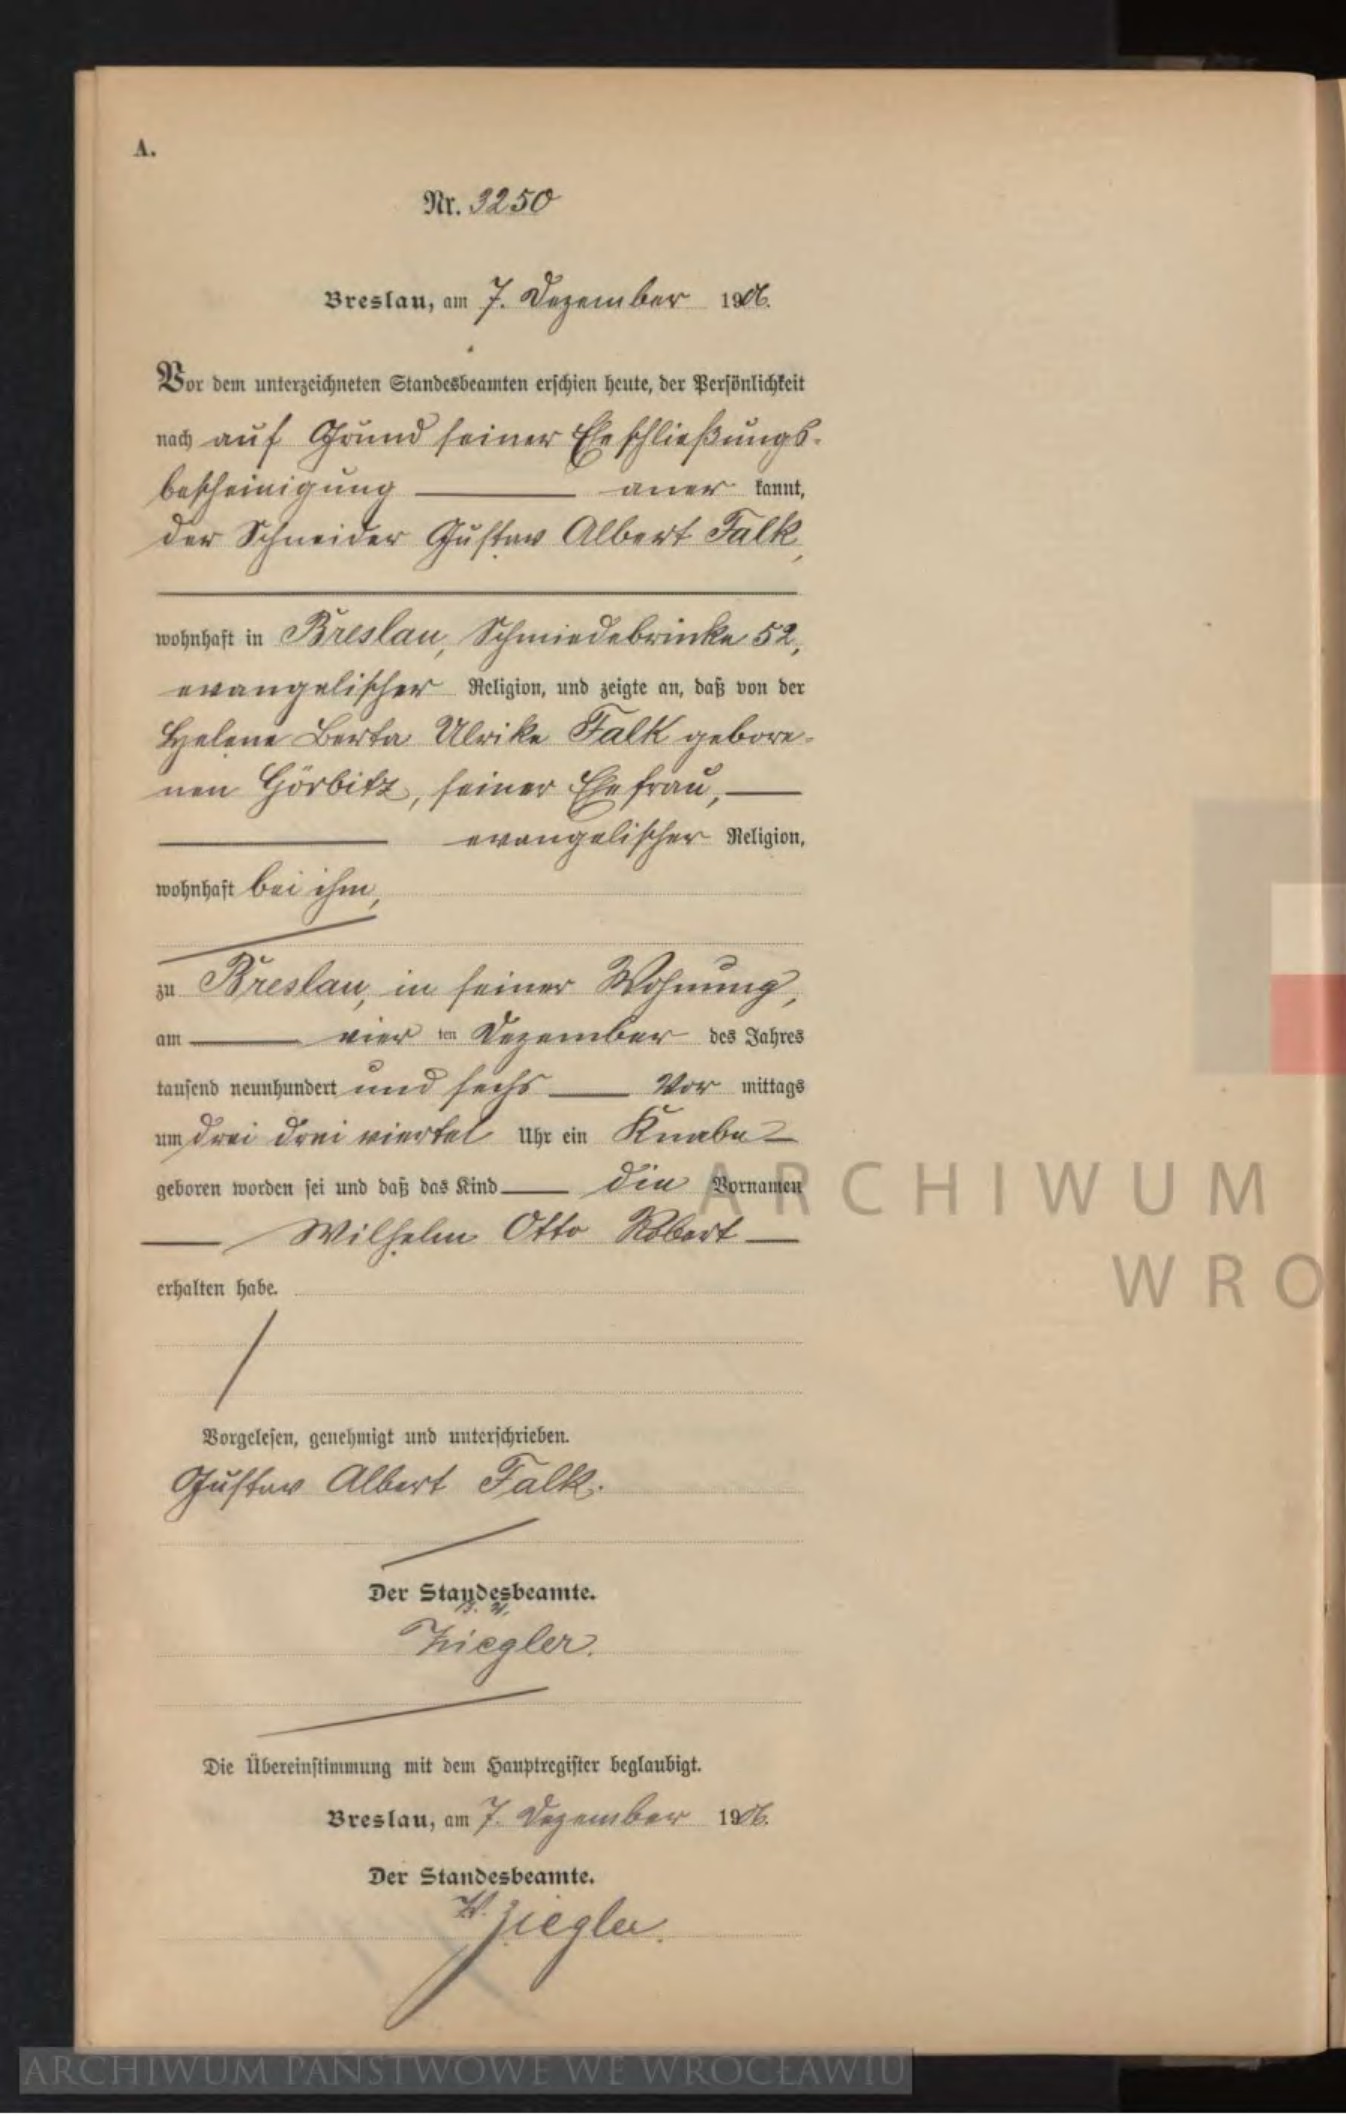 A.
Nr. 3250
Breslau, am 7. Dezember 1906.
Vor dem unterzeichneten Standesbeamten erschien heute, der Persönlichkeit
nach auf Grund seiner Eheschließungs-
bescheinigung aner kannt,
der Schneider Gustav Albert Falk,
wohnhaft in Breslau, Schmiedebrücke 52,
evangelischer Religion, und zeigte an, daß von der
Helene Berta Ulrike Falk gebore-
nen Görbitz, seiner Ehefrau,
evangelischer Religion,
wohnhaft bei ihm,
zu Breslau, in seiner Wohnung,
am vier ten Dezember des Jahres
tausend neunhundert und sechs Vor mittags
um drei drei viertel Uhr ein Knabe
geboren worden sei und daß das Kind die Vornamen
Wilhelm Otto Robert
erhalten habe.
Vorgelesen, genehmigt und unterschrieben.
Gustav Albert Falk.
Der Standesbeamte.
Ziegler.
Die Übereinstimmung mit dem Hauptregister beglaubigt.
Breslau, am 7. Dezember 1906.
Der Standesbeamte.
Ziegler.
ARCHIWUM
WRO
ARCHIWUM PAŃSTWOWE WE WROCŁAWIU